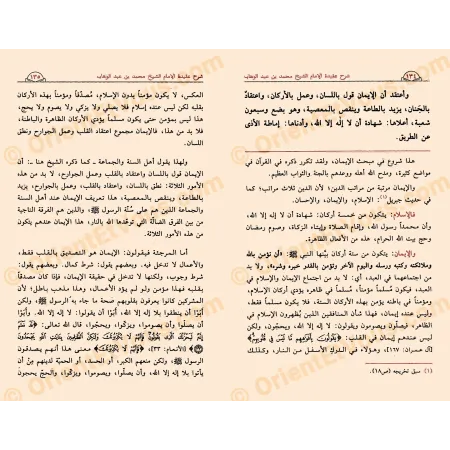 ١٣٤ شرح عقيدة الإمام الشيخ محمد بن عبد الوهاب
وأعتقد أن الإيمان قول باللسان، وعمل بالأركان، واعتقاد
بالجنان، يزيد بالطاعة وينقص بالمعصية، وهو بضع وسبعون
شعبة، أعلاها: شهادة أن لا إله إلا الله، وأدناها: إماطة الأذى
عن الطريق.
هذا شروع في مبحث الإيمان، ولقد تكرر ذكره في القرآن في
مواضع كثيرة، ومدح الله أهله ووعدهم بالجنة والثواب العظيم.
والإيمان مرتبة من مراتب الدين؛ لأن الدين ثلاث مراتب؛ كما
في حديث جبريل(١): الإسلام، والإيمان، والإحسان.
فالإسلام: يتكون من خمسة أركان: شهادة أن لا إله إلا الله،
وأن محمداً رسول الله، وإقام الصلاة وإيتاء الزكاة، وصوم رمضان
وحج بيت الله الحرام، هذه من الأفعال الظاهرة.
والإيمان: يتكون من ستة أركان بينها النبي ﷺ: أن تؤمن بالله
وملائكته وكتبه ورسله واليوم الآخر وتؤمن بالقدر خيره وشره، ولا بد
من اجتماع الإسلام والإيمان في العبد، أي: لا بد من اجتماعهما في
العبد، فيكون مسلماً مؤمناً، مسلماً في ظاهره يؤدي أركان الإسلام،
ومؤمناً في باطنه يؤمن بهذه الأركان الستة، فلا يكون مسلماً فقط،
وليس عنده إيمان، فهذا شأن المنافقين الذين يُظهرون الإسلام في
الظاهر، فيصلّون ويصومون ويقولون: لا إله إلا الله، ويحجّون، ولكن
ليس عندهم إيمان في القلب: ﴿يَقُولُونَ بِأَفْوَاهِهِم مَّا لَيْسَ فِي قُلُوبِهِمْ﴾
[آل عمران: ١٦٧]، وهؤلاء في الدرك الأسفل من النار، وكذلك
(١) سبق تخريجه (ص١٨).
شرح عقيدة الإمام الشيخ محمد بن عبد الوهاب ١٣٥
العكس، لا يكون مؤمناً بدون الإسلام، مُصدّقاً ومؤمناً بهذه الأركان
بقلبه لكن ليس عنده إسلام فلا يصلي ولا يزكي ولا يصوم ولا يحج،
هذا ليس بمؤمن حتى يكون مسلماً يؤدي الأركان الظاهرة والباطنة،
فلا بد من هذا، فالإيمان مجموع اعتقاد القلب وعمل الجوارح ونطق
اللسان.
ولهذا يقول أهل السنة والجماعة ـ كما ذكره الشيخ هنا ـ: أن
الإيمان قول اللسان واعتقاد بالقلب وعمل الجوارح، لا بد من هذه
الأمور الثلاثة: نطق باللسان، واعتقاد بالقلب، وعمل بالجوارح، يزيد
بالطاعة، وينقص بالمعصية، هذا تعريف الإيمان عند أهل السنة
والجماعة الذين هم على سُنّة الرسول ﷺ، والذين هم الفرقة الناجية
من بين الفرق الضالّة التي توعّدها الله بالنار، هذا الإيمان عندهم يتكون
من هذه الأمور الثلاثة.
أما المرجئة فيقولون: الإيمان هو التصديق بالقلب فقط،
والأعمال لا تدخل فيه، وبعضهم يقول: شرط كمال، وبعضهم يقول:
شرط وجوب، ولكنها لا تدخل في حقيقة الإيمان، فإذا كان مصدقاً
بقلبه فهذا مؤمن ولو لم يؤد الأعمال، وهذا مذهب باطل؛ لأن
المشركين كانوا يعرفون بقلوبهم صحة ما جاء به الرسول ﷺ، ولكن
أبَوْا أن ينطقوا بلا إله إلا الله، أبَوْا أن يقولوا: لا إله إلا الله، وأبَوْا
أن يصلّوا وأن يصوموا، ويزكّوا، ويحجّوا، قال الله تعالى: ﴿قَدْ نَعْلَمُ
إِنَّهُ لَيَحْزُنُكَ الَّذِي يَقُولُونَ فَإِنَّهُمْ لَا يُكَذِّبُونَكَ وَلَكِنَّ الظَّالِمِينَ بِآيَاتِ اللَّهِ يَجْحَدُونَ﴾
[الأنعام: ٣٣]، ﴿لَا يُكَذِّبُونَكَ﴾ معنى هذا أنهم يصدقون
الرسول ﷺ، ولكن منعهم الكبر، أو الحسد، أو الحمية لدينهم مِنْ أن
يأتوا بلا إله إلا الله، وأن يصلّوا، ويصوموا، ويزكّوا، والحجّ يحجون